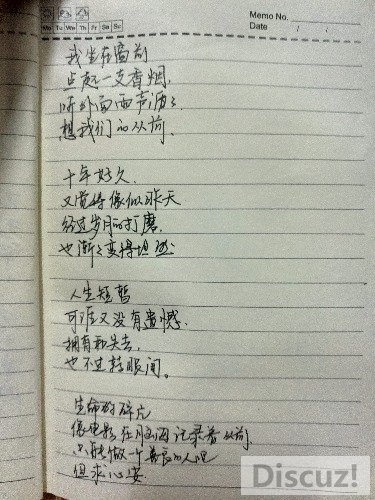 Memo No.
Mo Tu We Th Fr Sa Su
Date
我坐在窗前
点起一支香烟,
听外面雨声滴
想我们的从前.
十年好久.
又觉得像似昨天
经过岁月的打磨.
也渐渐变得坦然
人生短暂
可谁又没有遗憾.
拥有和失去.
也不过转眼间。
生命的碎片
像电影在脑海记录着从前.
只能做一个善良的人吧
但求心安
Discuz!